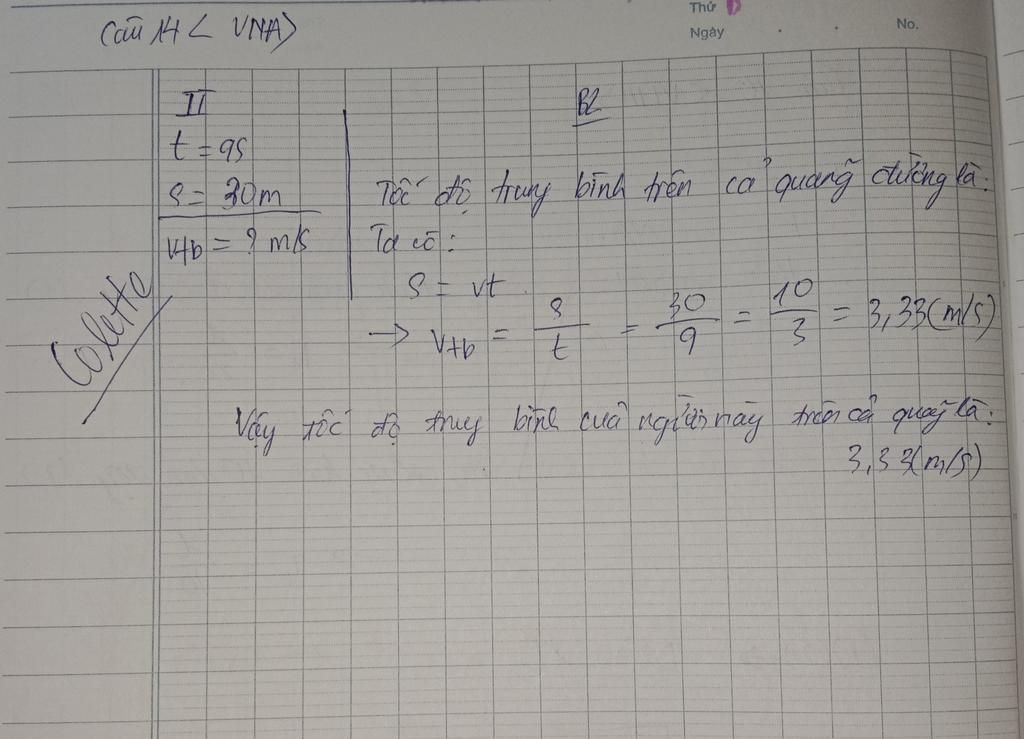 Thứ
Ngày
No.
Câu 14 < VNA>
TT
t = 9s
S = 30m
Vtb = ? m/s
BL
Tốc độ trung bình trên cả quãng đường là:
Ta có:
S = vt
→ Vtb = S/t = 30/9 = 10/3 = 3,33(m/s)
Vậy tốc độ trung bình của người này trên cả quãng là:
3,33(m/s)
Colette